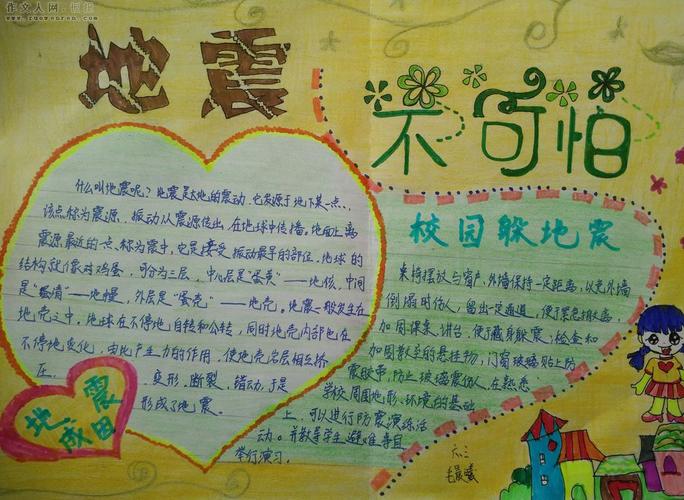 作文人网·恒投
www.zuowenren.com
地震
不可怕
什么叫地震呢？地震是大地的震动，它发源于地下某一点，
该点称为震源，振动从震源传出，在地球中传播，地面上离
震源最近的一点称为震中，它是接受振动最早的部位。地球的
结构就像对鸡蛋，可分为三层，中心层是“蛋黄”——地核，中间
是“蛋清”——地幔，外层是“蛋壳”——地壳，地震一般发生在
地壳之中，地球在不停地自转和公转，同时地壳内部也在
不停地变化，由此产生力的作用，使地壳岩层相互挤
压、变形，断裂，错动，于是
形成了地震。
地震
成因
校园躲地震
桌椅摆放与窗户、外墙保持一定距离，以免外墙
倒塌时伤人，留出一定通道，便于紧急撤离；
加固课桌、讲台，便于藏身躲震；检查和
加固教室的悬挂物；门窗玻璃贴上防
震胶带，防止玻璃震伤人，在熟悉
学校周围地形、环境的基础
上，可以进行防震演练活
动。并教导学生避难等自
举行演习。
六.三